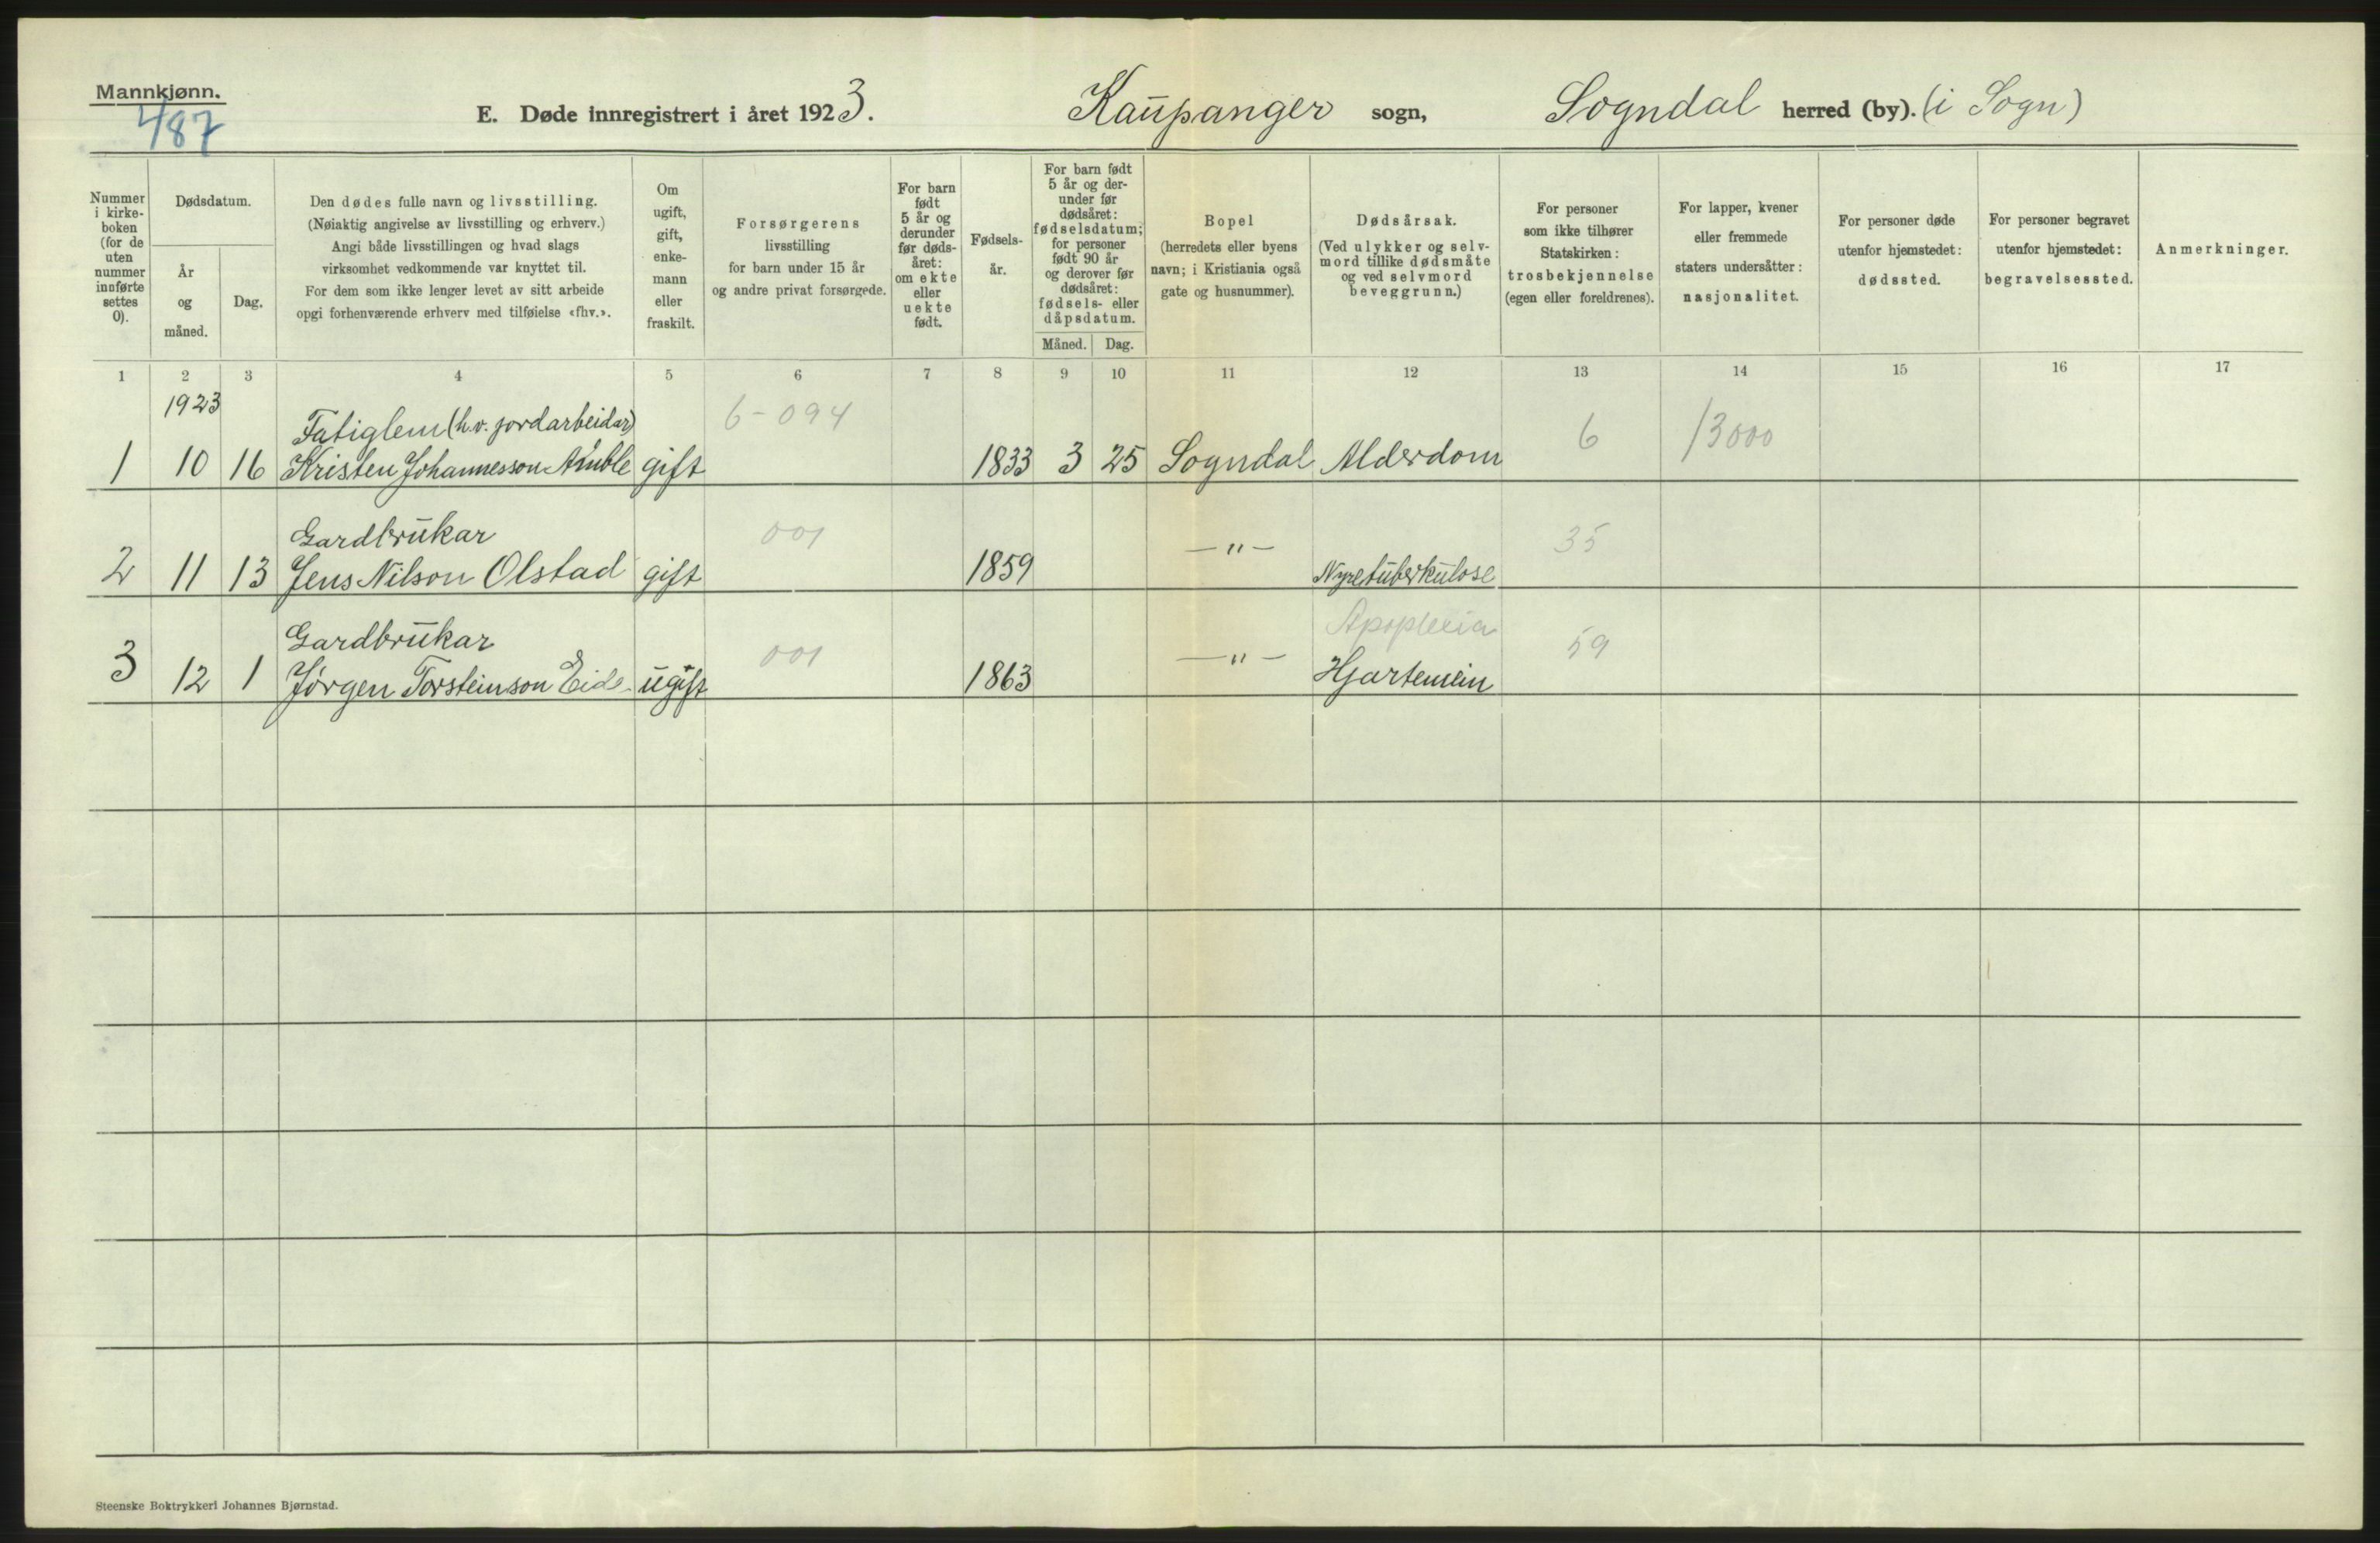 Mannkjønn.
487
E. Døde innregistrert i året 1923. Kaupanger sogn, Sogndal herred (by). (i Sogn)
Nummer i kirke- boken (for de uten nummer innførte settes 0).
Dødsdatum.
År og måned.
Dag.
Den dødes fulle navn og livsstilling.
(Nøiaktig angivelse av livsstilling og erhverv.)
Angi både livsstillingen og hvad slags
virksomhet vedkommende var knyttet til.
For dem som ikke lenger levet av sitt arbeide
opgi forhenværende erhverv med tilføielse «fhv.».
Om ugift, gift, enke- mann eller fraskilt.
Forsørgerens
livsstilling
for barn under 15 år
og andre privat forsørgede.
For barn født 5 år og derunder før døds- året: om ekte eller uekte født.
Fødsels- år.
For barn født 5 år og der- under før dødsåret: fødselsdatum; for personer født 90 år og derover før dødsåret: fødsels- eller dåpsdatum.
Måned. Dag.
Bopel
(herredets eller byens
navn; i Kristiania også
gate og husnummer).
Dødsårsak.
(Ved ulykker og selv-
mord tillike dødsmåte
og ved selvmord
beveggrunn.)
For personer
som ikke tilhører
Statskirken:
trosbekjennelse
(egen eller foreldrenes).
For lapper, kvener
eller fremmede
staters undersåtter:
nasjonalitet.
For personer døde
utenfor hjemstedet:
dødssted.
For personer begravet
utenfor hjemstedet:
begravelsessted.
Anmerkninger.
1 2 3 4 5 6 7 8 9 10 11 12 13 14 15 16 17
1923
Fatiglem (h.v. jordarbeidar) 6-094
1 10 16 Kristen Johannesson Amble gift 1833 3 25 Sogndal Alderdom 6 13000
Gardbrukar 001
2 11 13 Jens Nilson Olstad gift 1859 —"— Nyretuberkulose 35
Gardbrukar 001 Apoplexia
3 12 1 Jørgen Torsteinson Eide ugift 1863 —"— Hjartemein 59
Steenske Boktrykkeri Johannes Bjørnstad.